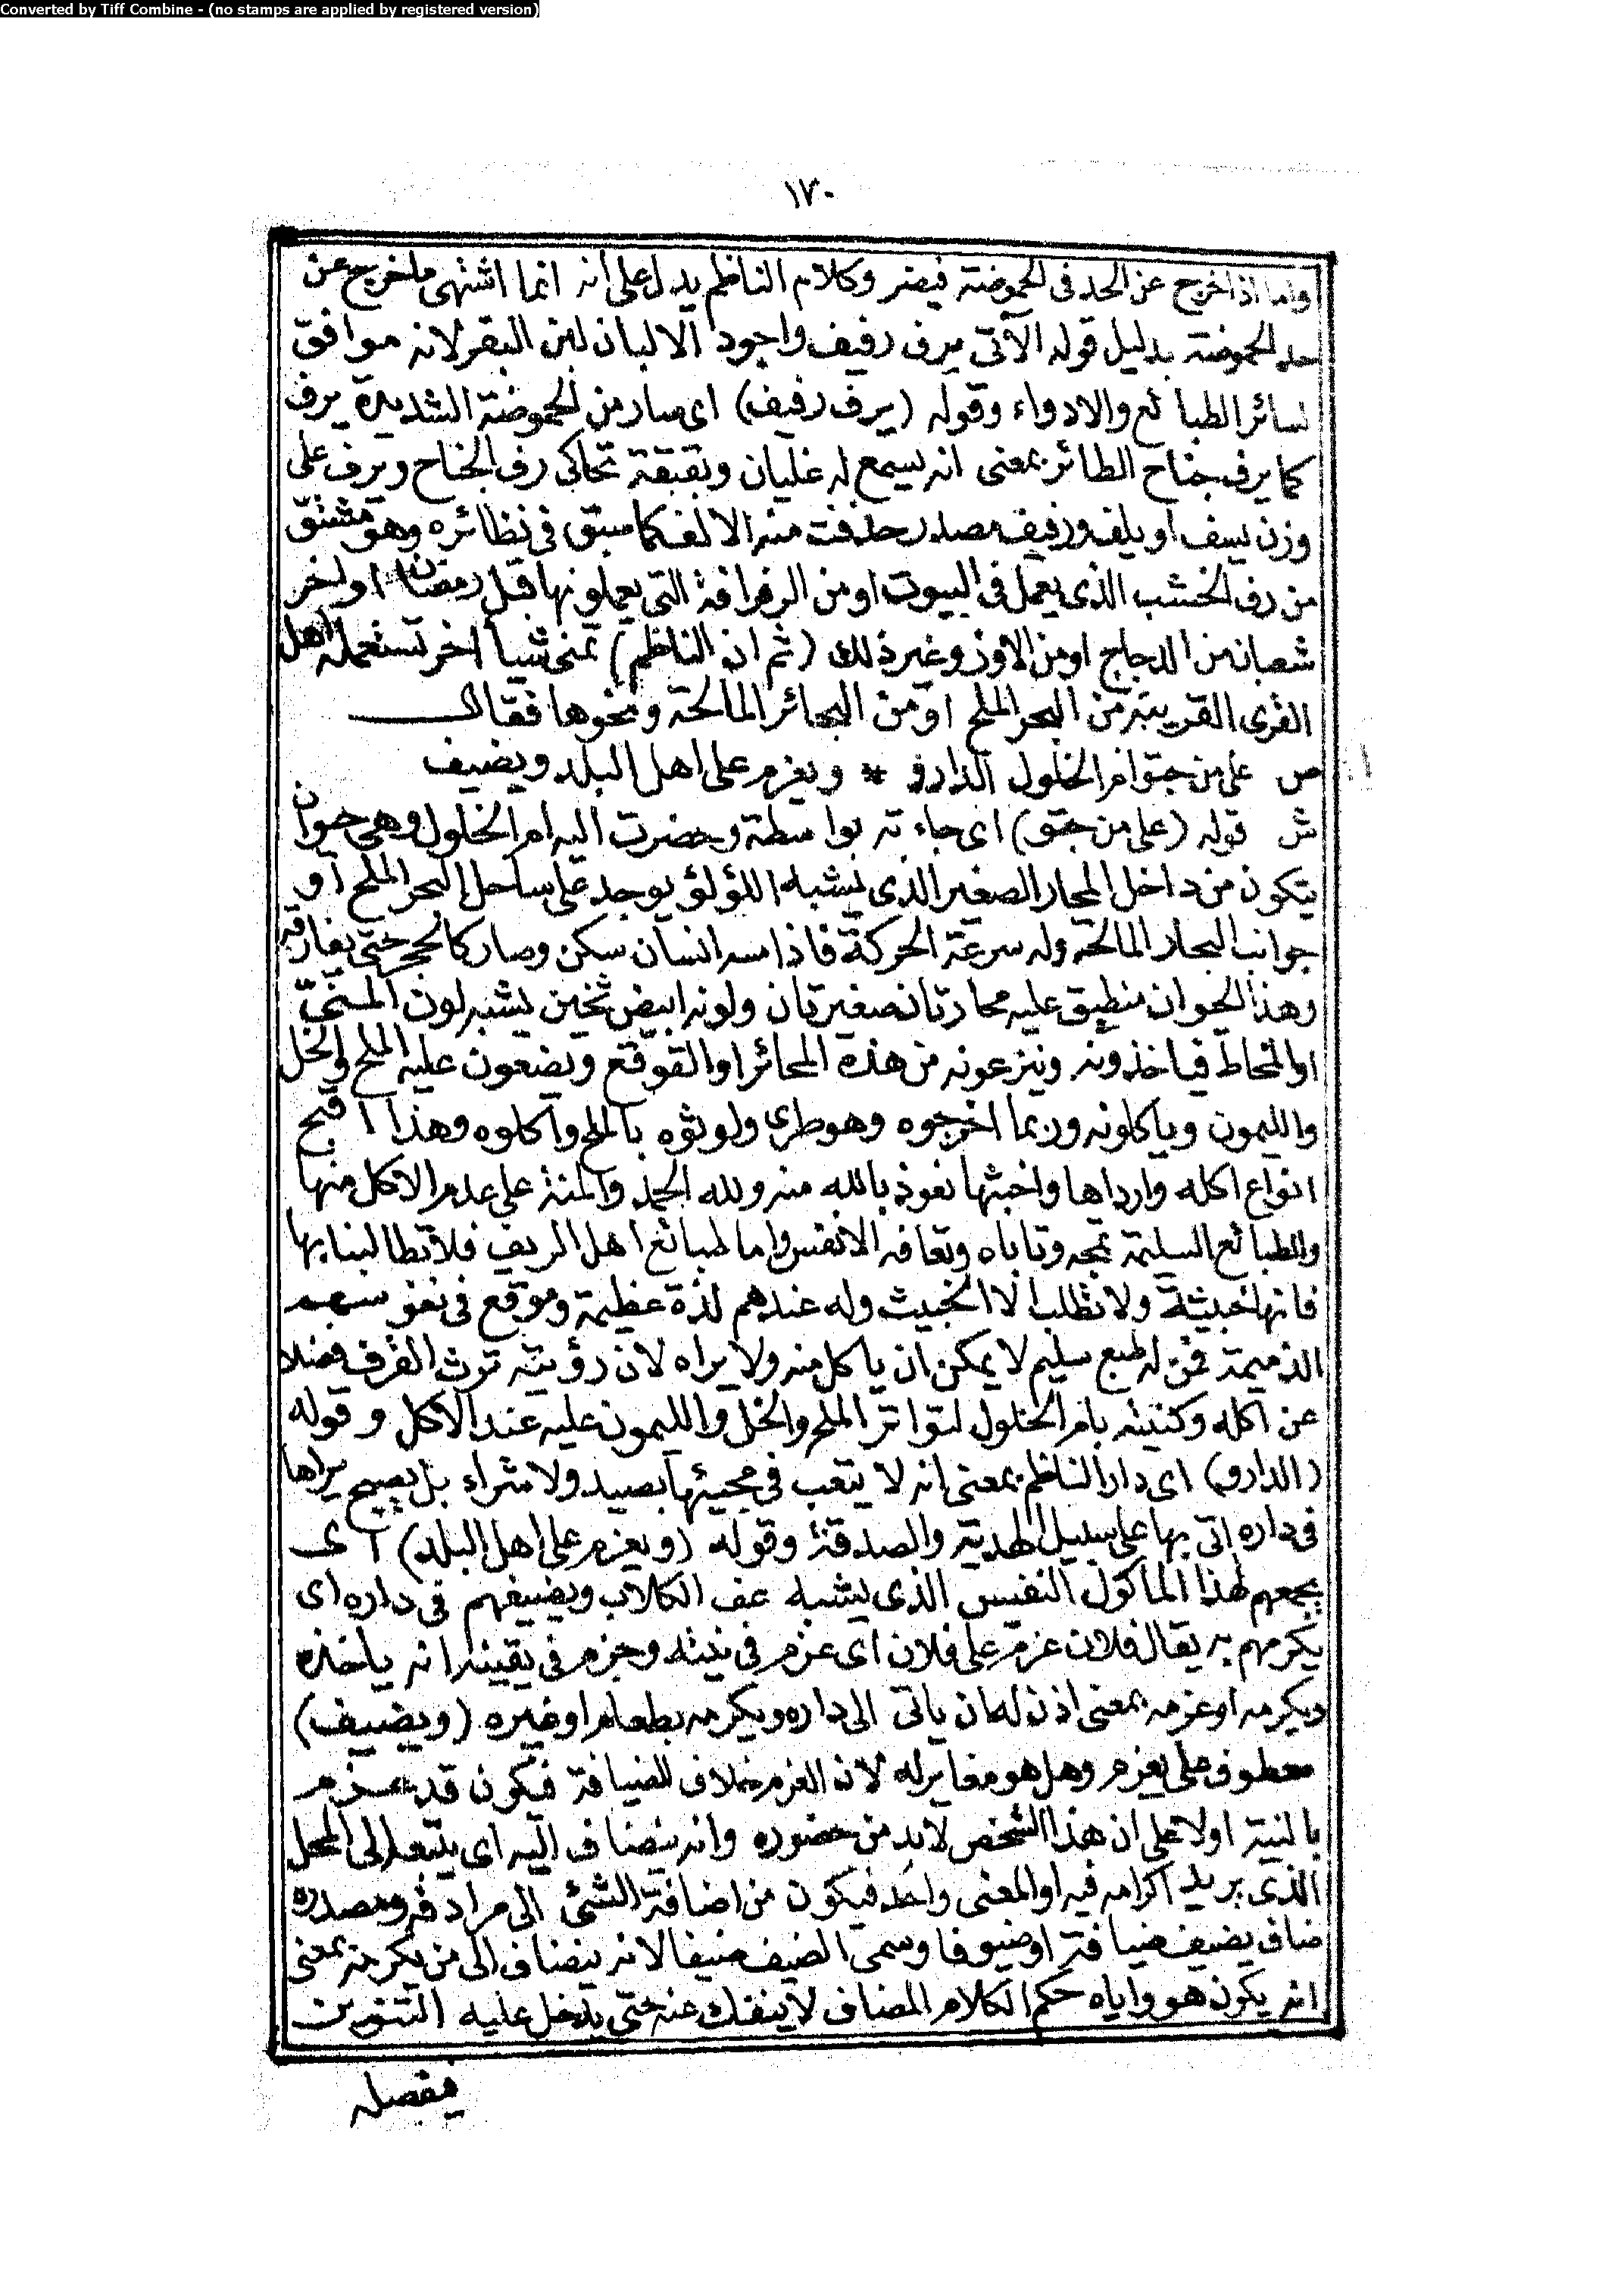 Converted by Tiff Combine - (no stamps are applied by registered version)
١٧٠
واما اذا خرج عن الحد فى الحموضة فيضر وكلام الناظم يدل على أنه انما اشتهى ما خرج عن
حد الحموضة بدليل قوله الآتى يرف رفيف واجود الالبان لبن البقر لانه موافق
لسائر الطبائع والادواء وقوله (يرف رفيف) اى صار من الحموضة الشديدة يرف
كما يرف جناح الطائر بمعنى انه يسمع له غليان وبقبقة تحاكى رف الجناح ويرف على
وزن يسف او يلف ورفيف مصدر حذفت منه الالف كما سبق فى نظائره وهو مشتق
من رف الخشب الذى يعمل فى البيوت او من الرفرافة التى يعملونها قبل رمضان اواخر
شعبان من الدجاج او من الاوز وغير ذلك (ثم ان الناظم) تمنى شيأ آخر تستعمله اهل
القرى القريبة من البحر الملح او من البحائر المالحة ونحوها فقال
ص على من جتو ام الخلول الدارو * ويعزم على اهل البلد ويضيف
ش قوله (على من جتو) اى جاءته بواسطة وحضرت اليه ام الخلول وهى حيوان
يتكون من داخل المحار الصغير الذى يشبه اللؤلؤ يوجد على ساحل البحر الملح او
جوانب البحار المالحة وله سرعة الحركة فاذا مسه انسان سكن وصار كالحجر حتى يفارقه
وهذا الحيوان منطبق عليه محارتان صغيرتان ولونه ابيض ثخين يشبه لون المنىّ
او المخاط فياخذونه وينزعونه من هذه المحائر او القوقع ويضعون عليه الملح والخل
والليمون وياكلونه وربما اخرجوه وهو طرى ولوثوه بالملح واكلوه وهذا اقبح
انواع اكله وارداها واخبثها نعوذ بالله منه ولله الحمد والمنة على عدم الاكل منها
والطبائع السليمة تمجه وتاباه وتعافه الانفس واما طبائع اهل الريف فلا تطالبنا بها
فانها خبيثة ولا تطلب الا الخبيث وله عندهم لذة عظيمة وموقع فى نفوسهم
الذميمة فمن له طبع سليم لا يمكن ان ياكل منه ولا يراه لان رؤيته تورث القرف فضلا
عن اكله وكنيته بام الخلول لتواتر الملح والخل والليمون عليه عند الاكل وقوله
(الدارو) اى دار الناظم بمعنى انه لا يتعب فى مجيئها بصيد ولا شراء بل يصبح يراها
فى داره اتى بها على سبيل الهدية والصدقة وقوله (ويعزم على اهل البلد) اى
يجمعهم لهذا الماكول النفيس الذى يشبه عف الكلاب ويضيفهم فى داره اى
يكرمهم به يقال فلان عزم على فلان اى عزم فى نيته وجزم فى يقينه انه ياخذه
ويكرمه او عزمه بمعنى اذن له ان ياتى الى داره ويكرمه بطعام او غيره (ويضيف)
معطوف على يعزم وهل هو مغاير له لان العزم خلاف للضيافة فيكون قد عزم
بالنية اولا على ان هذا الشخص لابد من حضوره وانه ينضاف اليه اى يتبعه الى المحل
الذى يريد اكرامه فيه او المعنى واحد فيكون من اضافة الشئ الى مرادفه ومصدره
ضاف يضيف ضيافة او ضيوفا وسمى الضيف ضيفا لانه ينضاف الى من يكرمه بمعنى
انه يكون هو واياه حكم الكلام المضاف لا ينفك عنه حتى يدخل عليه التنوين
فيفصله